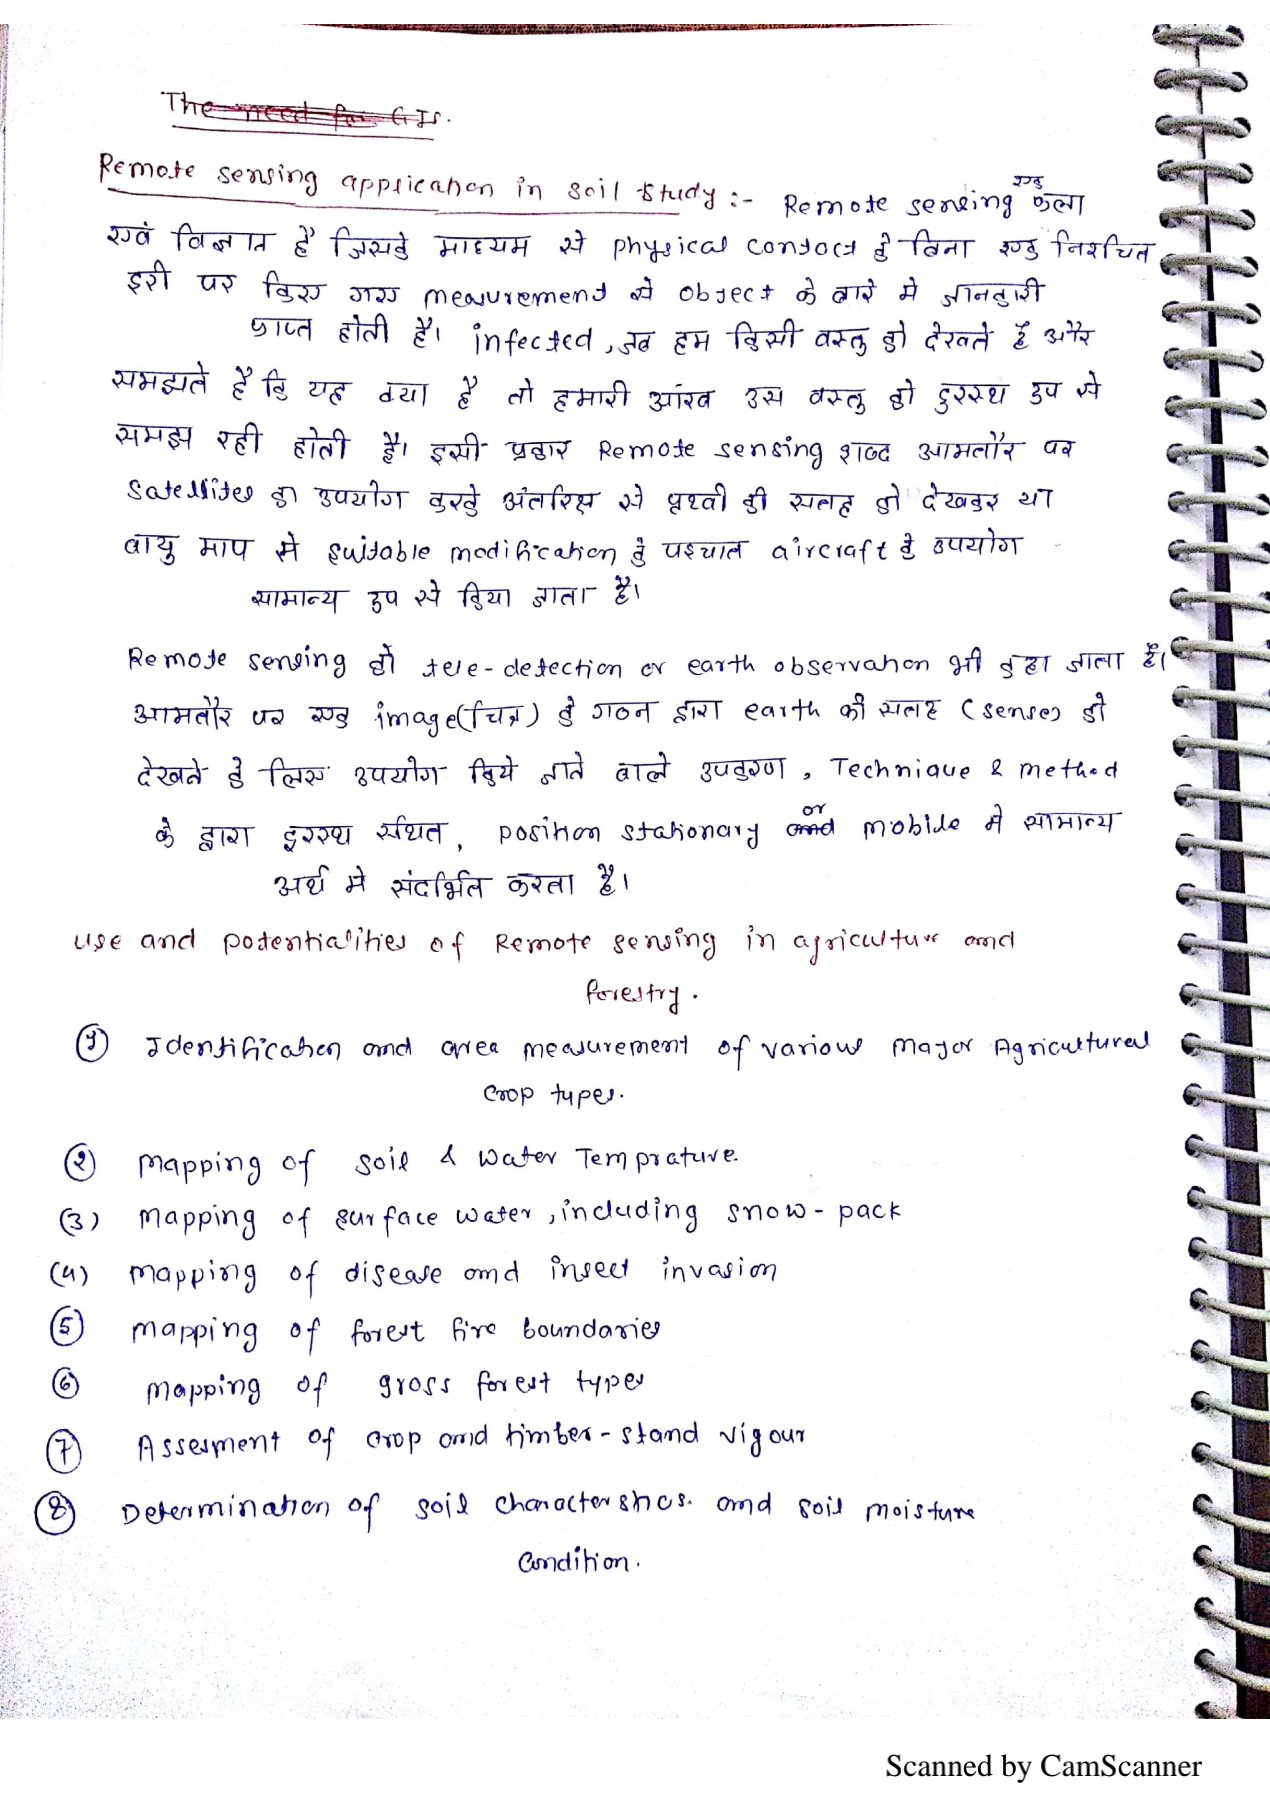 The need for GIS.
Remote sensing application in soil study :- Remote sensing एक कला
एवं विज्ञान है जिसके माध्यम से physical contact के बिना एक निश्चित
दूरी पर किए गए measurement से object के बारे मे जानकारी
प्राप्त होती है। infected, जब हम किसी वस्तु को देखते है और
समझते है कि यह क्या है तो हमारी आंख उस वस्तु को दुरस्थ रुप से
समझ रही होती है। इसी प्रकार Remote sensing शब्द आमतौर पर
Satellites का उपयोग करके अंतरिक्ष से पृथ्वी की सतह को देखकर या
वायु माप मे suitable modification के पश्चात aircraft के उपयोग
सामान्य रुप से किया जाता है।
Remote sensing को tele-detection or earth observation भी कहा जाता है।
आमतौर पर एक image(चित्र) के गठन द्वारा earth की सतह (sense) को
देखने के लिए उपयोग किये जाने वाले उपकरण, Technique & method
के द्वारा दुरस्थ स्थित, position stationary or and mobile मे सामान्य
अर्थ मे संदर्भित करता है।
use and potentialities of Remote sensing in agriculture and
forestry.
① Identification and area measurement of various major Agricultural
crop types.
② mapping of soil & water Temprature.
(3) mapping of surface water, including snow-pack
(4) mapping of disease and insect invasion
⑤ mapping of forest fire boundaries
⑥ mapping of gross forest types
⑦ Assesment of crop and timber-stand vigour
⑧ Determination of soil characterstics. and soil moisture
condition.
Scanned by CamScanner